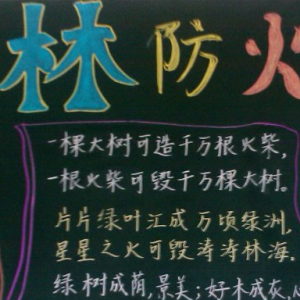 林防火
一棵大树可造千万根火柴,
一根火柴可毁千万棵大树。
片片绿叶汇成万顷绿洲,
星星之火可毁涛涛林海.
绿树成荫,景美;好木成灰,